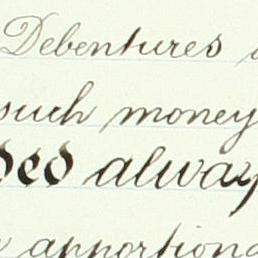 Debentures
such money
always
apportion